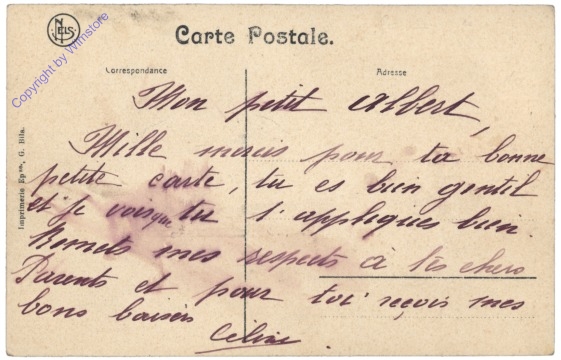 NELS
Copyright by Wimstore
Carte Postale.
Correspondance
Adresse
Imprimerie Epse. G. Bila.
Mon petit Albert,
Mille mercis pour ta bonne
petite carte, tu es bien gentil
et je vois que tu t'appliques bien.
Remets mes respects à tes chers
Parents et pour toi reçois mes
bons baisers
Céline